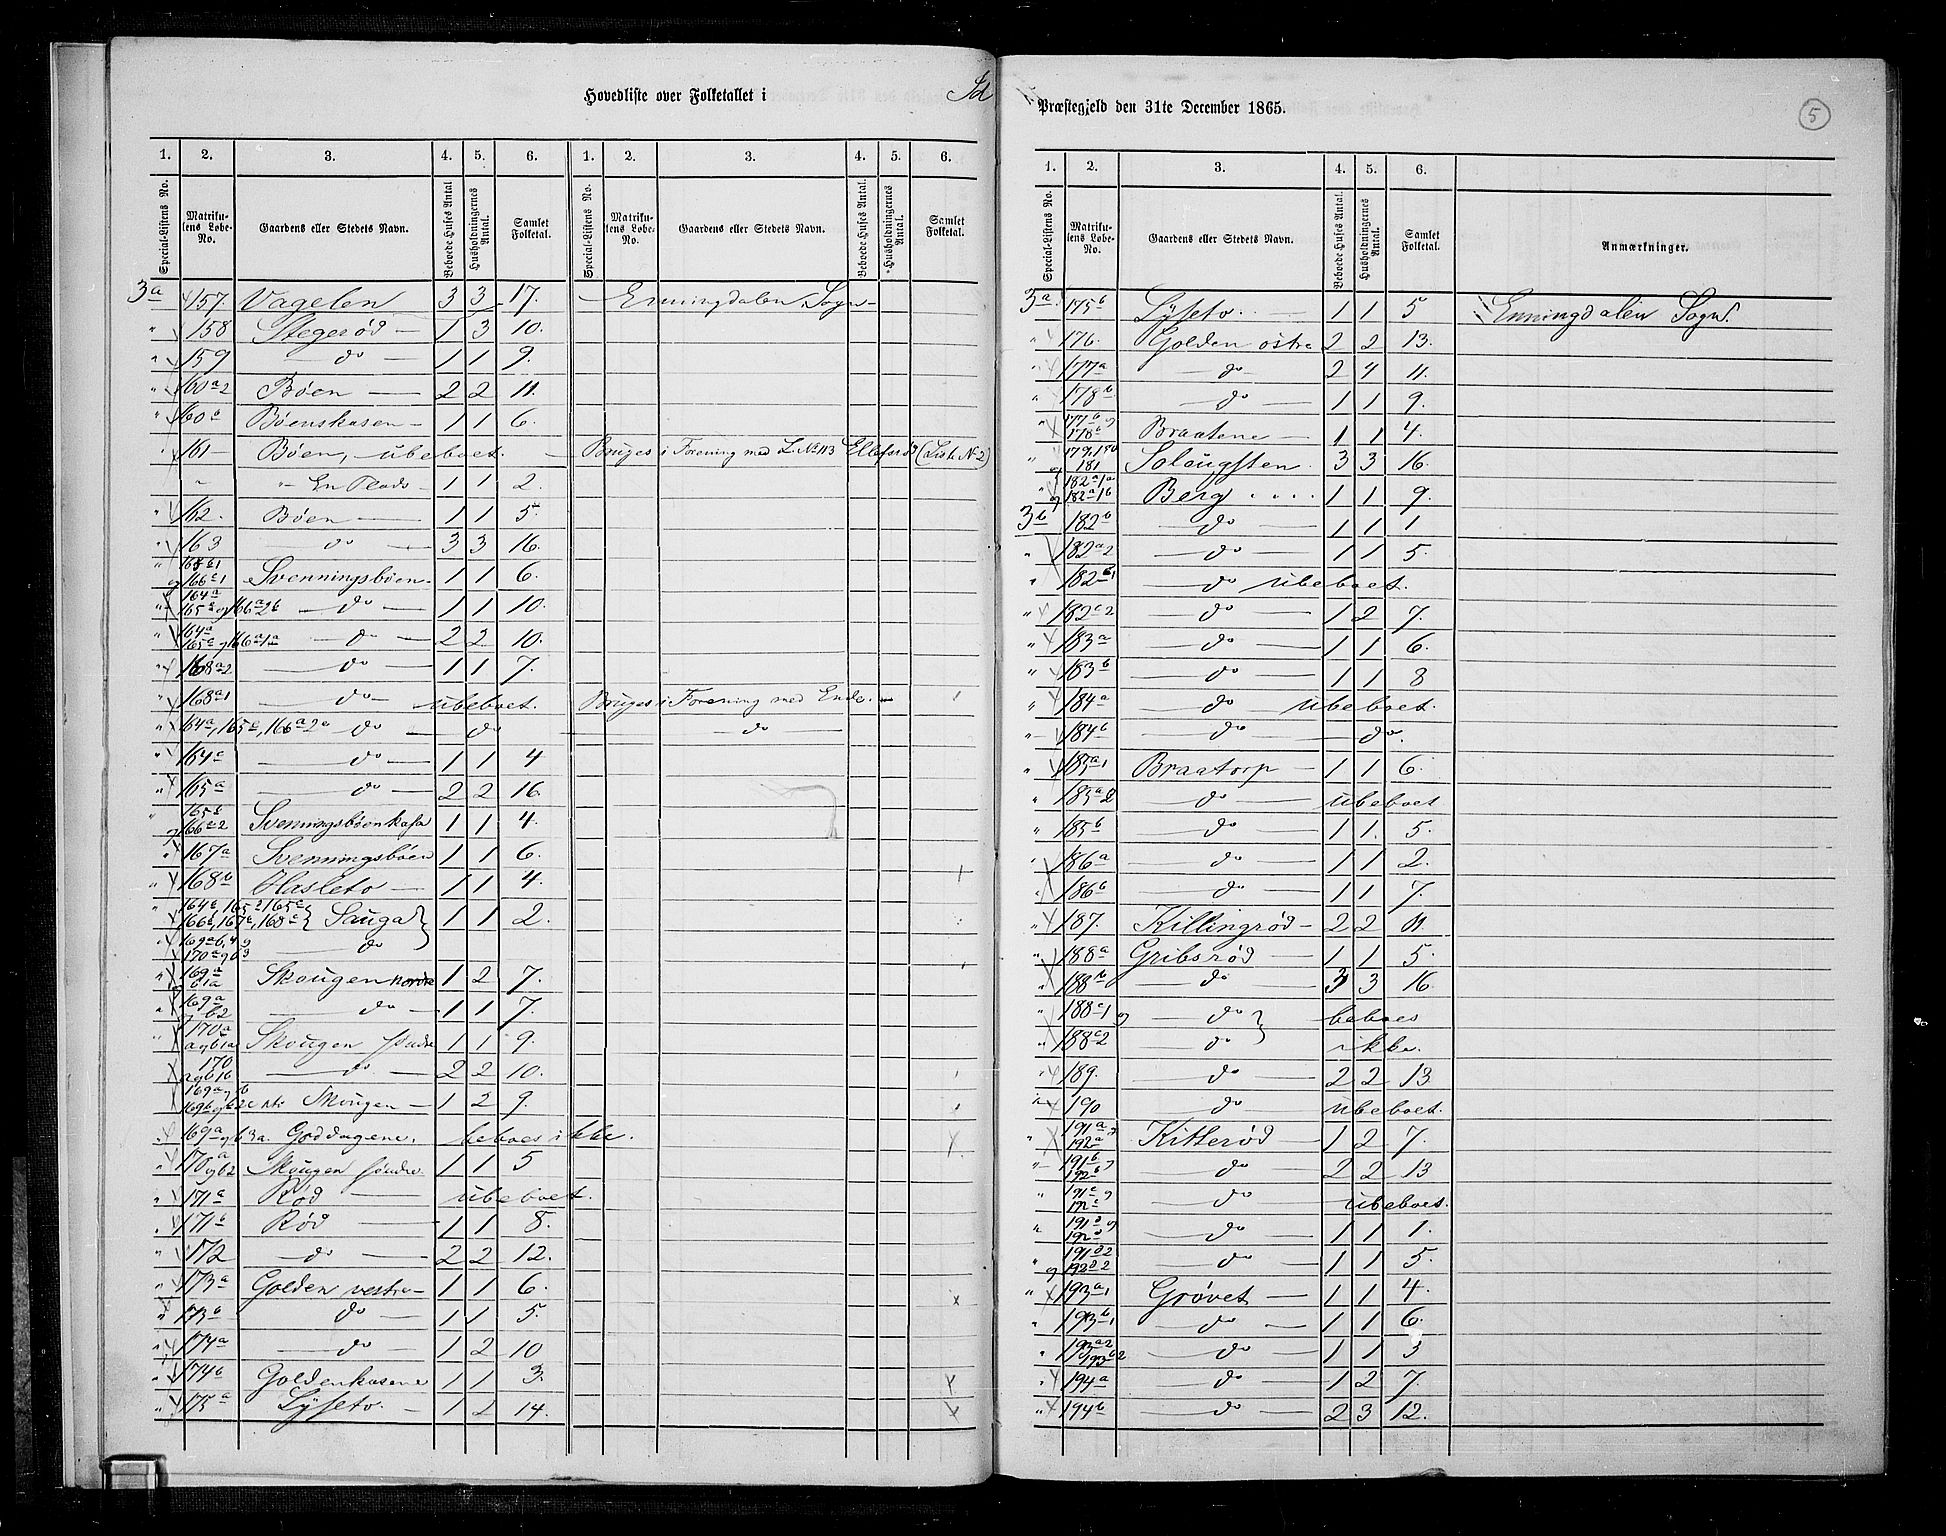 Hovedliste over Folketallet i Id Præstegjeld den 31te December 1865.
5
1. 2. 3. 4. 5. 6. 1. 2. 3. 4. 5. 6.
Special-Listens No. Matrikulens Løbe-No. Gaardens eller Stedets Navn. Beboede Huses Antal Husholdningernes Antal. Samlet Folketal. Special-Listens No. Matrikulens Løbe-No. Gaardens eller Stedets Navn. Beboede Huses Antal Husholdningernes Antal. Samlet Folketal.
3a 157. Vagelen 3 3 17. Enningdalen Sogn
" 158 Stegerød 1 3 10.
" 159 do 1 1 9.
" 160a2 Bøen 2 2 11.
" 160b Bøenskasen 1 1 6.
" 161 Bøen, ubeboet. Bruges i Forening med L.No 113 Ellefsrød (Liste No 2)
" " En Plads 1 1 2.
" 162. Bøen 1 1 5.
" 163 do 3 3 16.
" 165c1 og 166c1 Svenningsbøen 1 1 6.
" 164a 165c og 166a2b do 1 1 10.
" 164a 165c og 166a1a do 2 2 10.
" 168a2 do 1 1 7.
" 168a1 do ubeboet. Bruges i Forening med Ende.
" 164a, 165c, 166a2c do do do
" 164c do 1 1 4
" 165a do 2 2 16.
" 165b og 166c2 Svenningsbøenkasa 1 1 4.
" 167a Svenningsbøen 1 1 6.
" 168b Hasleto 1 1 4.
" 164b, 165d, 165e 166b, 167c, 168c Sauga 1 1 2.
" 169a6,4 og 170a og b3 do
" 169a b1a Skougen nordre 1 2 7.
" 169a og b2 do 1 1 7.
" 170a a og b1a Skougen søndre 1 1 9.
170 a og b1b do 2 2 10.
169a og b 169b og b2c Skougen 1 2 9.
" 169a og b3a. Goddagene. beboes ikke.
" 170a og b2 Skougen søndre 1 1 5
" 171a Rød ubeboet.
" 171b Rød 1 1 8.
" 172 do 2 2 12.
" 173a Golden vestre 1 1 6.
" 173b do 1 1 5.
" 174a do 1 2 10
" 174b Goldenkasene 1 1 3.
" 175a Lyseto 1 2 14.
1. 2. 3. 4. 5. 6.
Special-Listens No. Matrikulens Løbe-No. Gaardens eller Stedets Navn. Beboede Huses Antal. Husholdningernes Antal. Samlet Folketal. Anmærkninger.
3a 175b Lyseto 1 1 5 Enningdalen Sogn.
" 176. Golden østre 2 2 13.
" 177a do 2 4 11.
" 178b do 1 1 9.
" 177b og 178a Braatene 1 1 4.
" 179, 180 og 181 Solougsten 3 3 16.
" 182a1a og 182a1b Berg 1 1 9.
3b 182b do 1 1 1
" 182a2 do 1 1 5.
" 182c1 do ubeboet.
" 182c2 do 1 2 7.
" 183a do 1 1 6.
" 183b do 1 1 8
" 184a do ubeboet.
" 184b do do.
" 185a1 Braatorp 1 1 6.
" 185a2 do ubeboet
" 185b do 1 1 5.
" 186a do 1 1 2.
" 186b do 1 1 7.
" 187. Killingrød 2 2 11.
" 188a Gribsrød 1 1 5.
" 188b do 3 3 16.
" 188c1 og do beboes
" 188c2 do ikke.
" 189. do 2 2 13
" 190 do ubeboet.
" 191a og 192a Kitterød 1 2 7.
" 191b og 192b do 2 2 13
" 191c og 192c do ubeboet.
" 191d og 192d do 1 1 1.
" 191d2 og 192d2 do 1 1 5.
" 193a1 Grøvet 1 1 4.
" 193b1 do 1 1 6.
" 193a2 og 193b2 do 1 1 3
" 194a do 1 2 7.
" 194b do 2 3 12.